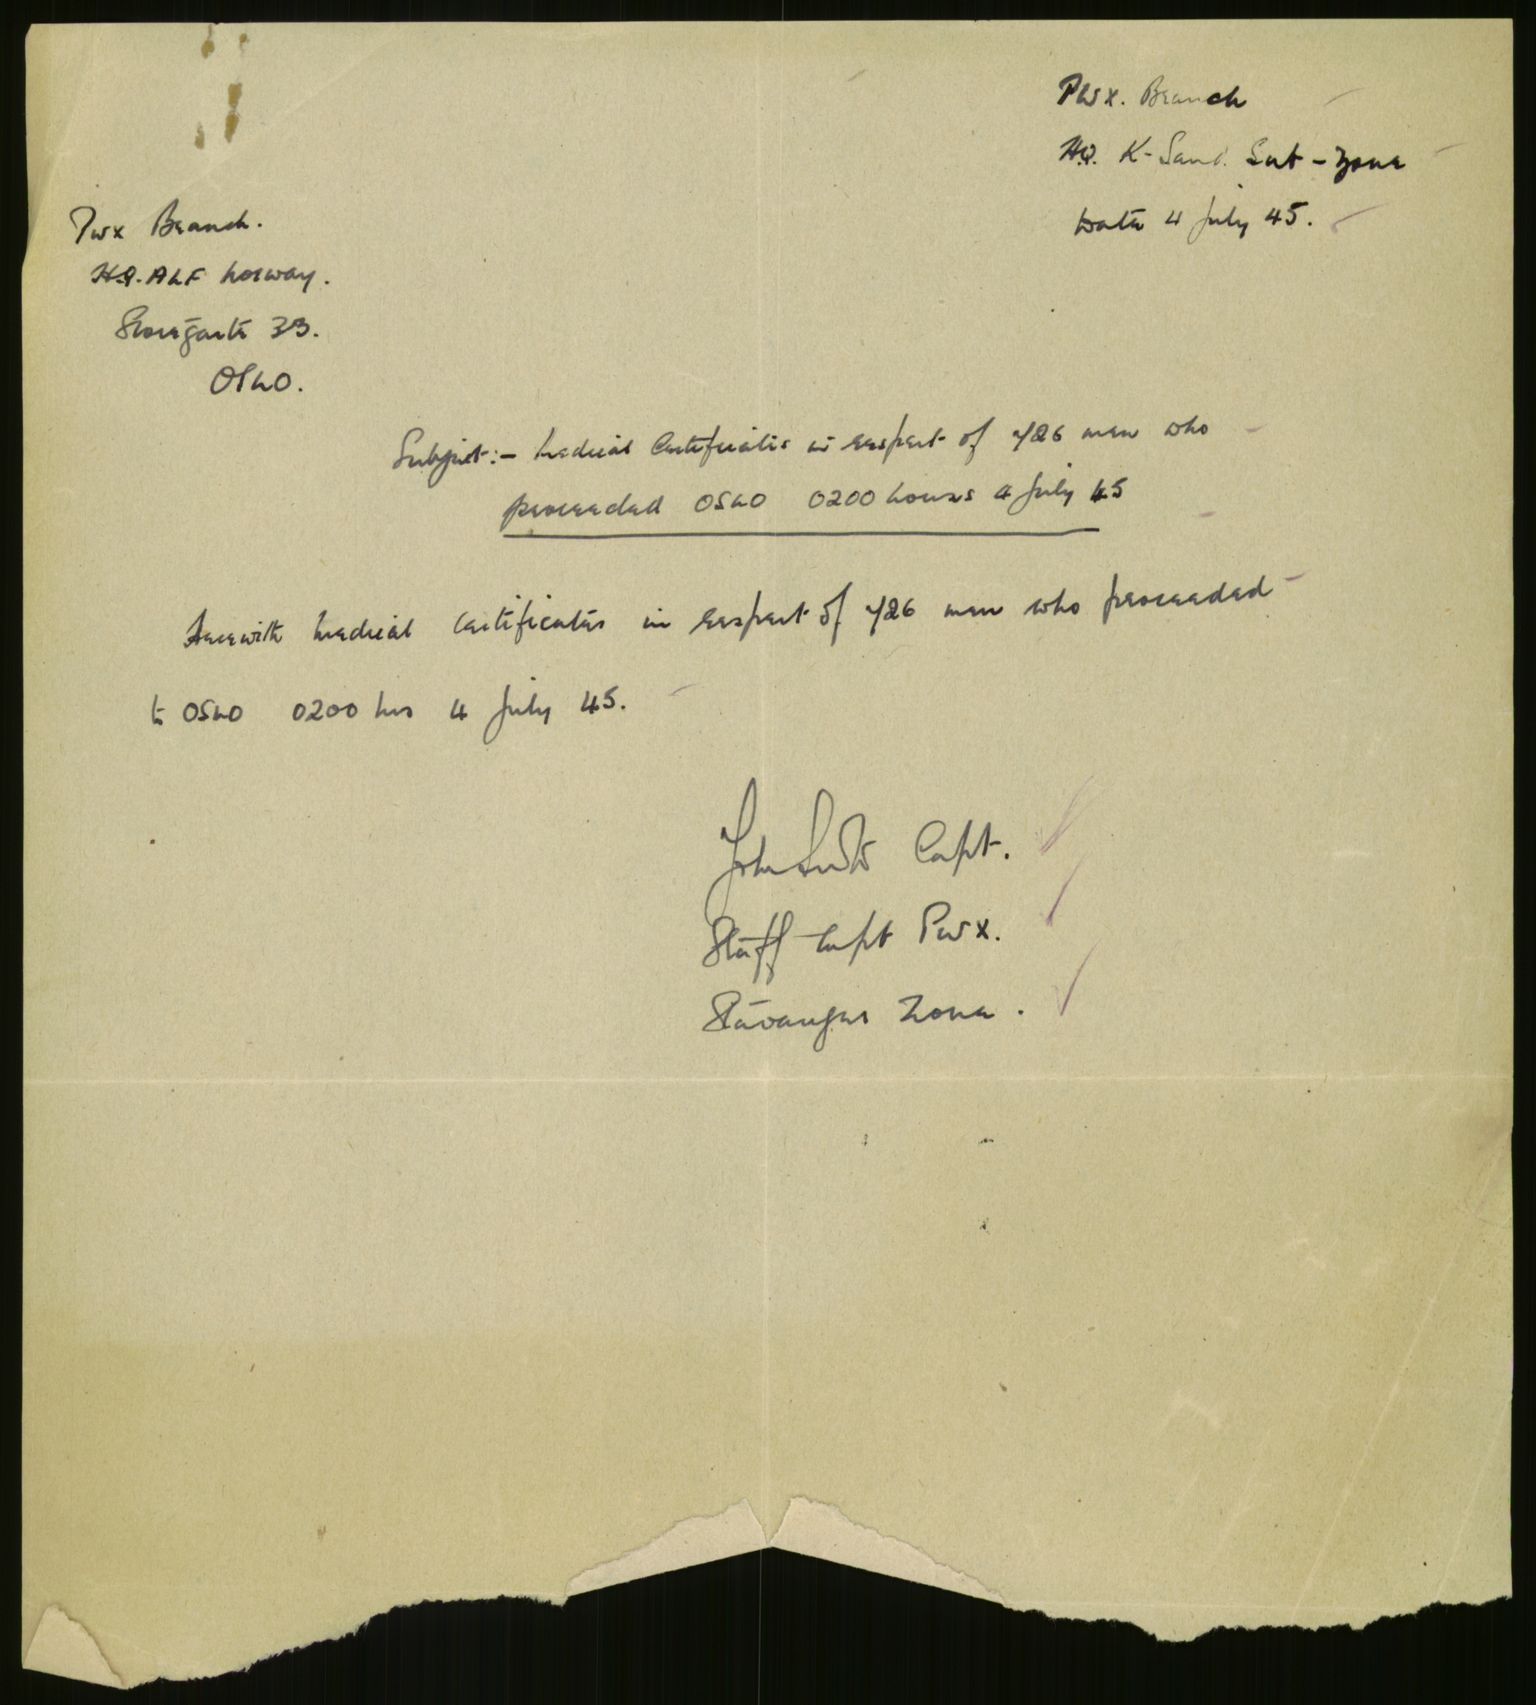 PWX. Branch
HQ. K-Sand. Sub-Zone
Date 4 July 45.
Pwx Branch.
H.Q. ALF Norway.
Storegarte 33.
OSLO.
Subject:- Medical Certificates in respect of 726 men who
proceeded OSLO 0200 hours 4 July 45
Herewith Medical Certificates in respect of 726 men who proceeded
to OSLO 0200 hrs 4 July 45.
John Capt.
Staff Capt Pwx.
Stavanger Zone.